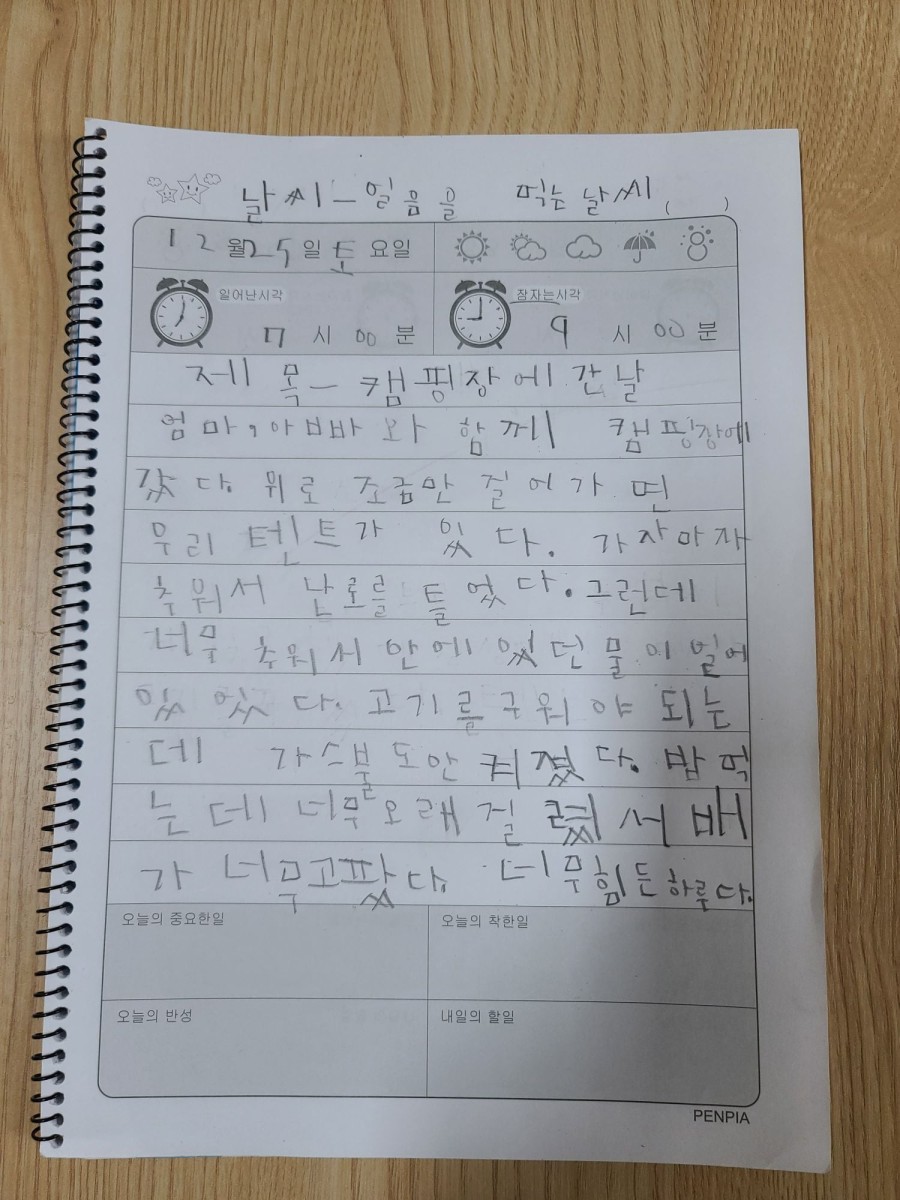 날씨-일음을 먹는 날씨 ( )
12월25일 토요일
일어난시각 잠자는시각
7시 00분 9시 00분
제목-캠핑장에 간 날
엄마,아빠와 함께 캠핑장에
갔다. 위로 조금만 걸어가 면
우리 텐트가 있다. 가자마자
추워서 난로를 틀었다.그런데
너무 추워서 안에 있던 물이 얼어
있 있다. 고기를구워야 되는
데 가스불도안 켜졌다. 밥먹
는데 너무오래걸렸서 배
가 너무고팠다. 너무힘든하루다.
오늘의 중요한일 오늘의 착한일
오늘의 반성 내일의 할일
PENPIA